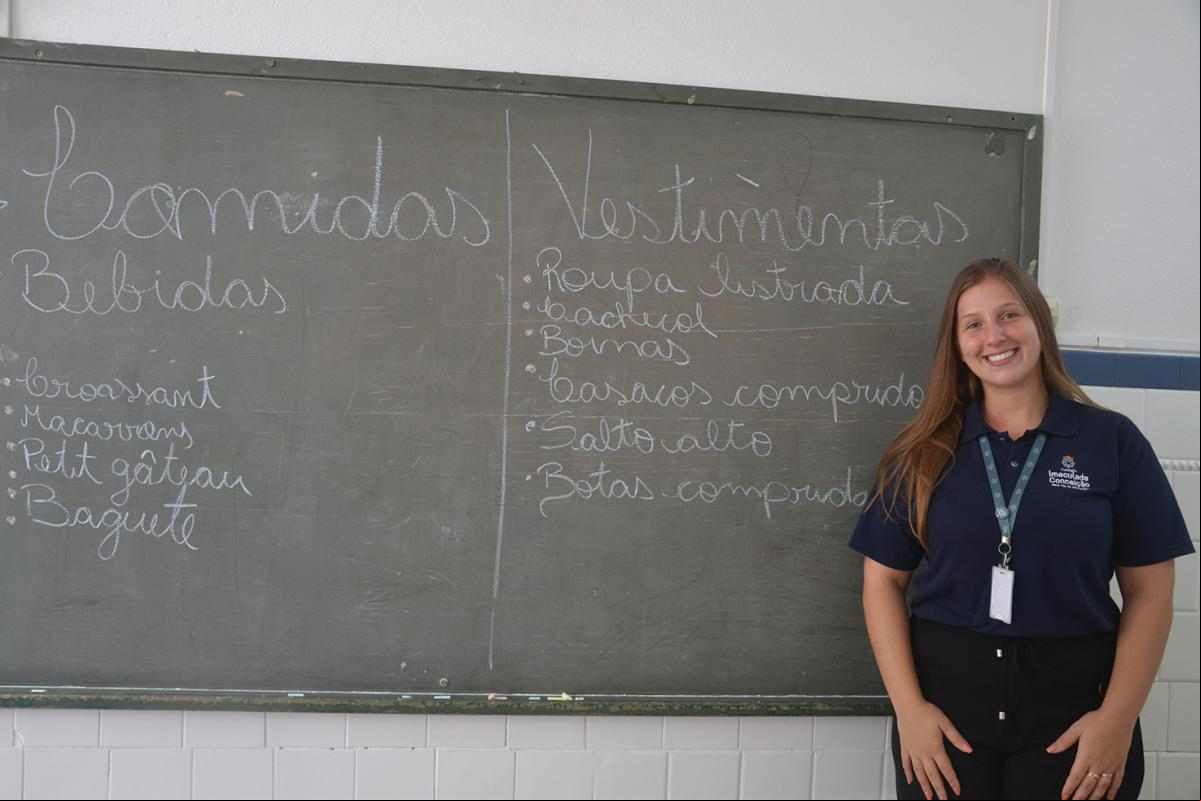 Comidas
Bebidas
Croassant
Macarrons
Petit gâteau
Baguete
Vestimentas
Roupa listrada
Cachecol
Boinas
Casacos comprido
Salto alto
Botas comprida
Colégio
Imaculada
Conceição